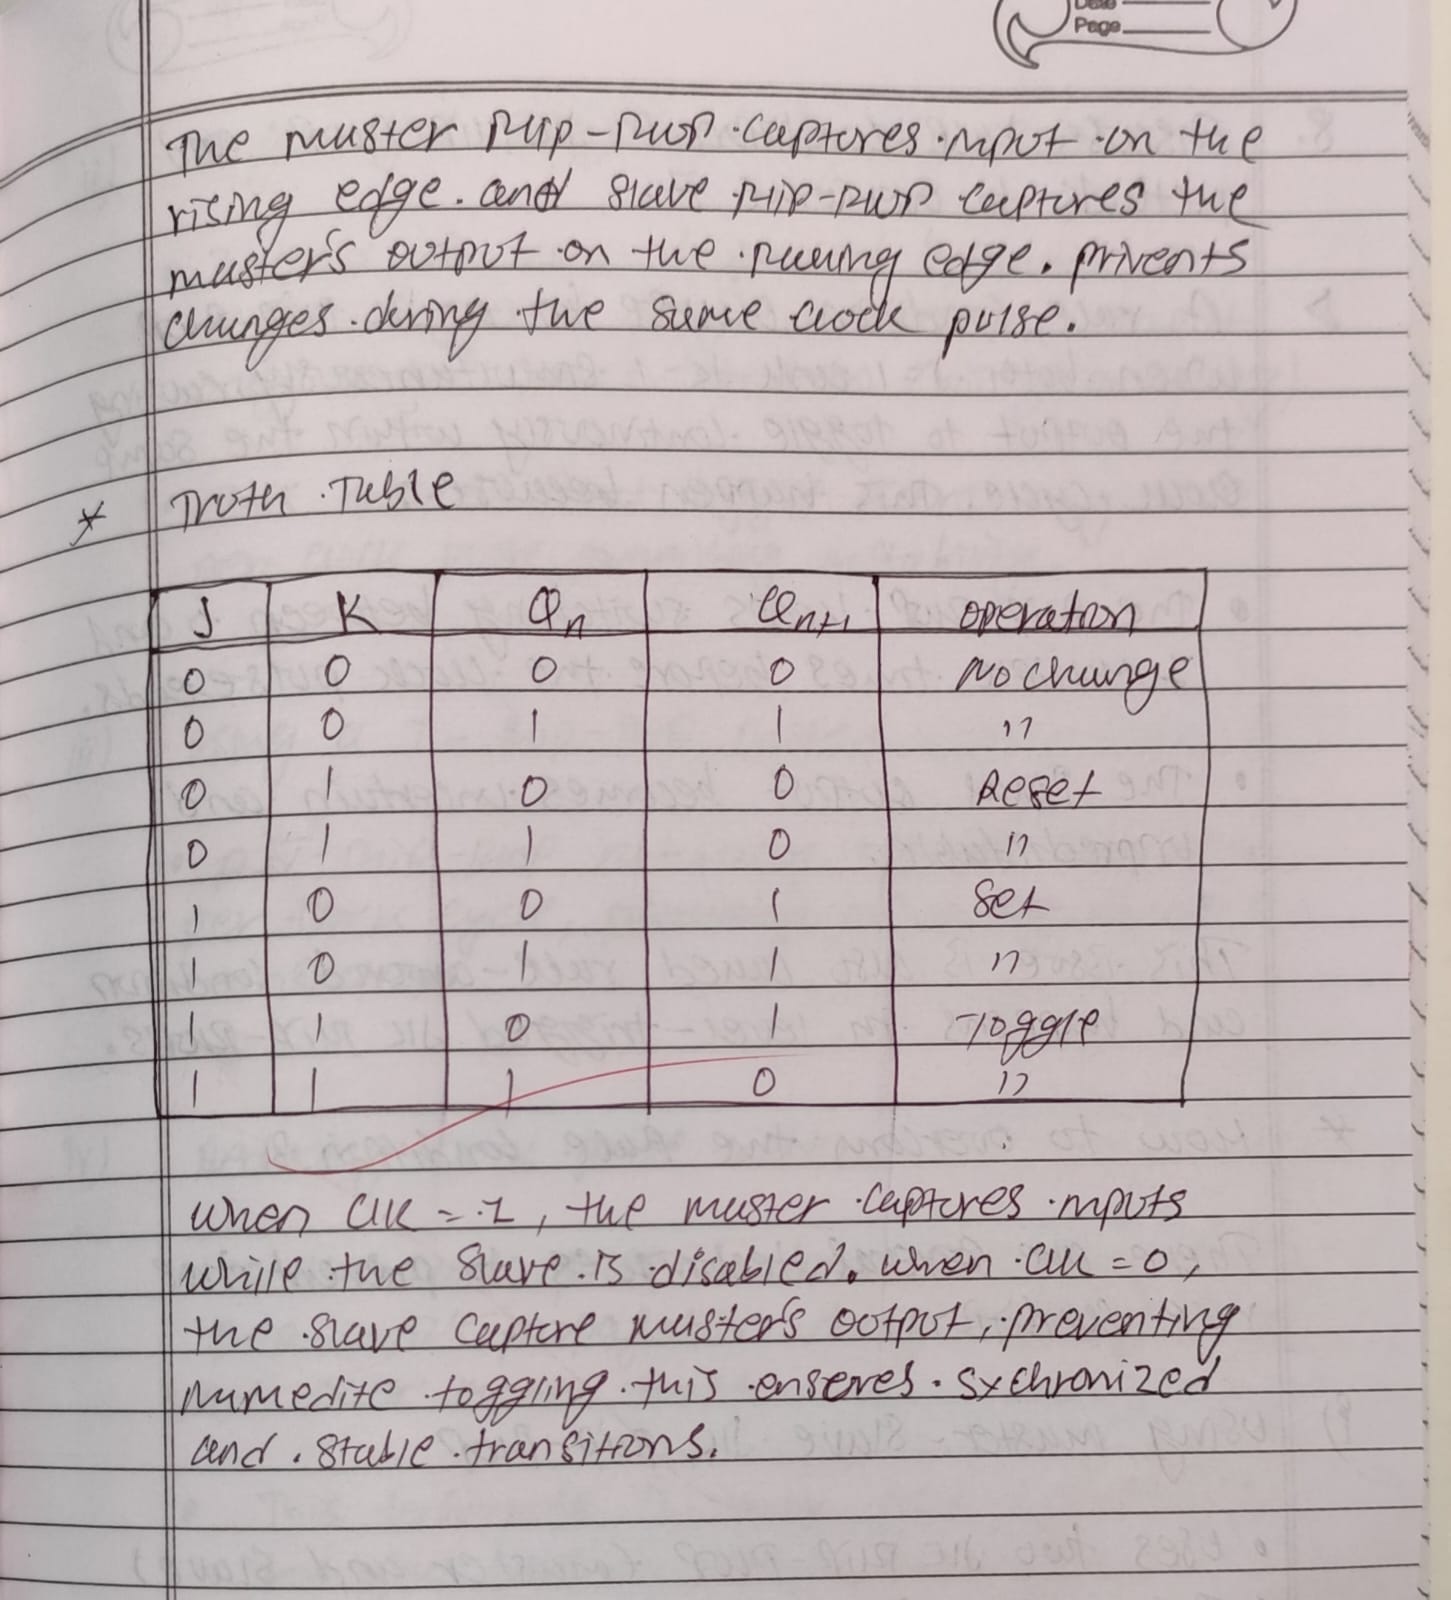 Date
Page
The master flip-flop captures input on the
rising edge. and slave flip-flop captures the
master's output on the falling edge. privents
changes during the same clock pulse.
* Truth Table
J K Qn Qn+1 operation
0 0 0 0 No change
0 0 1 1 "
0 1 0 0 Reset
0 1 1 0 "
1 0 0 1 Set
1 0 1 1 "
1 1 0 1 Toggle
1 1 1 0 "
when CLK = 1, the master captures inputs
while the slave is disabled. when CLK = 0,
the slave capture master's output, preventing
immedite toggling this enseres sychronized
and stable transitions.